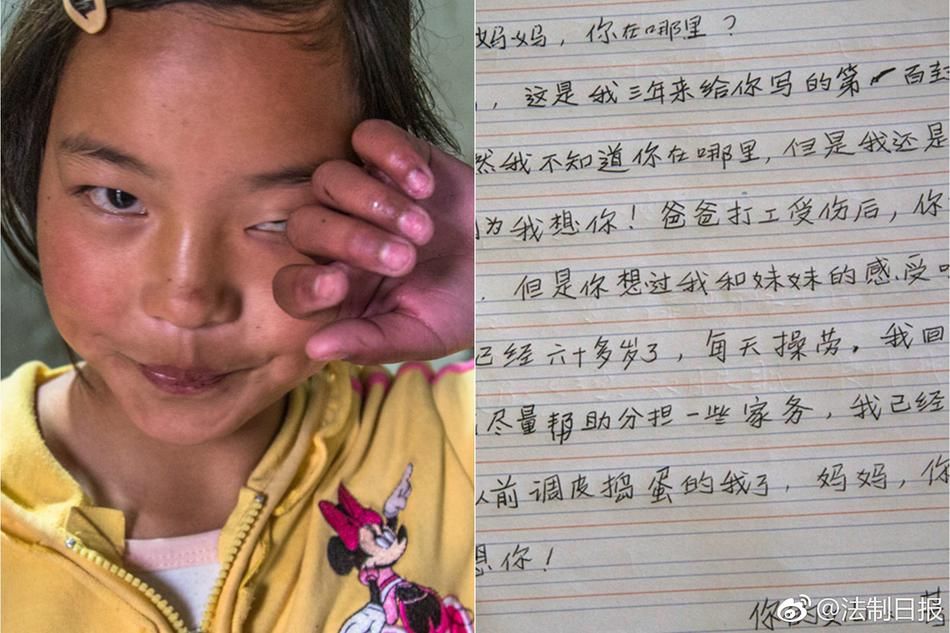 妈妈，你在哪里？
，这是我三年来给你写的第一百封
然我不知道你在哪里，但是我还是
为我想你！爸爸打工受伤后，你
，但是你想过我和妹妹的感受
已经六十多岁了，每天操劳，我回
尽量帮助分担一些家务，我已经
以前调皮捣蛋的我了，妈妈，你
想你！
你的
@法制日报